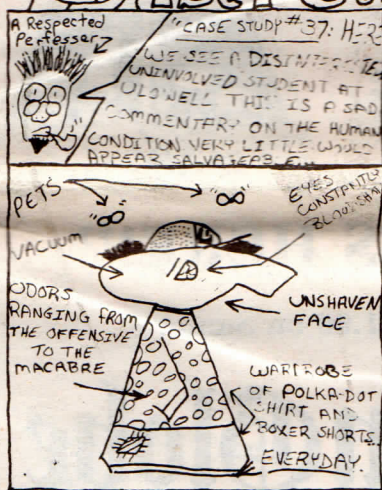 A Respected
Perfesser
"CASE STUDY #37: HERE
WE SEE A DISINTERESTED
UNINVOLVED STUDENT AT
ULOWELL THIS IS A SAD
COMMENTARY ON THE HUMAN
CONDITION VERY LITTLE WOULD
APPEAR SALVAGEABLE...
PETS
EYES
CONSTANTLY
BLOODSHOT
VACUUM
ODORS
RANGING FROM
THE OFFENSIVE
TO THE
MACABRE
UNSHAVEN
FACE
WARDROBE
OF POLKA-DOT
SHIRT AND
BOXER SHORTS...
EVERYDAY.